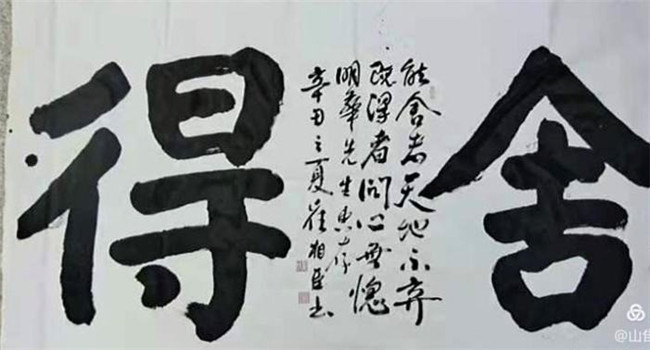 舍
能舍者天地不弃
既得者问心無愧
明華先生惠存
辛丑之夏崔相臣书
得
@山